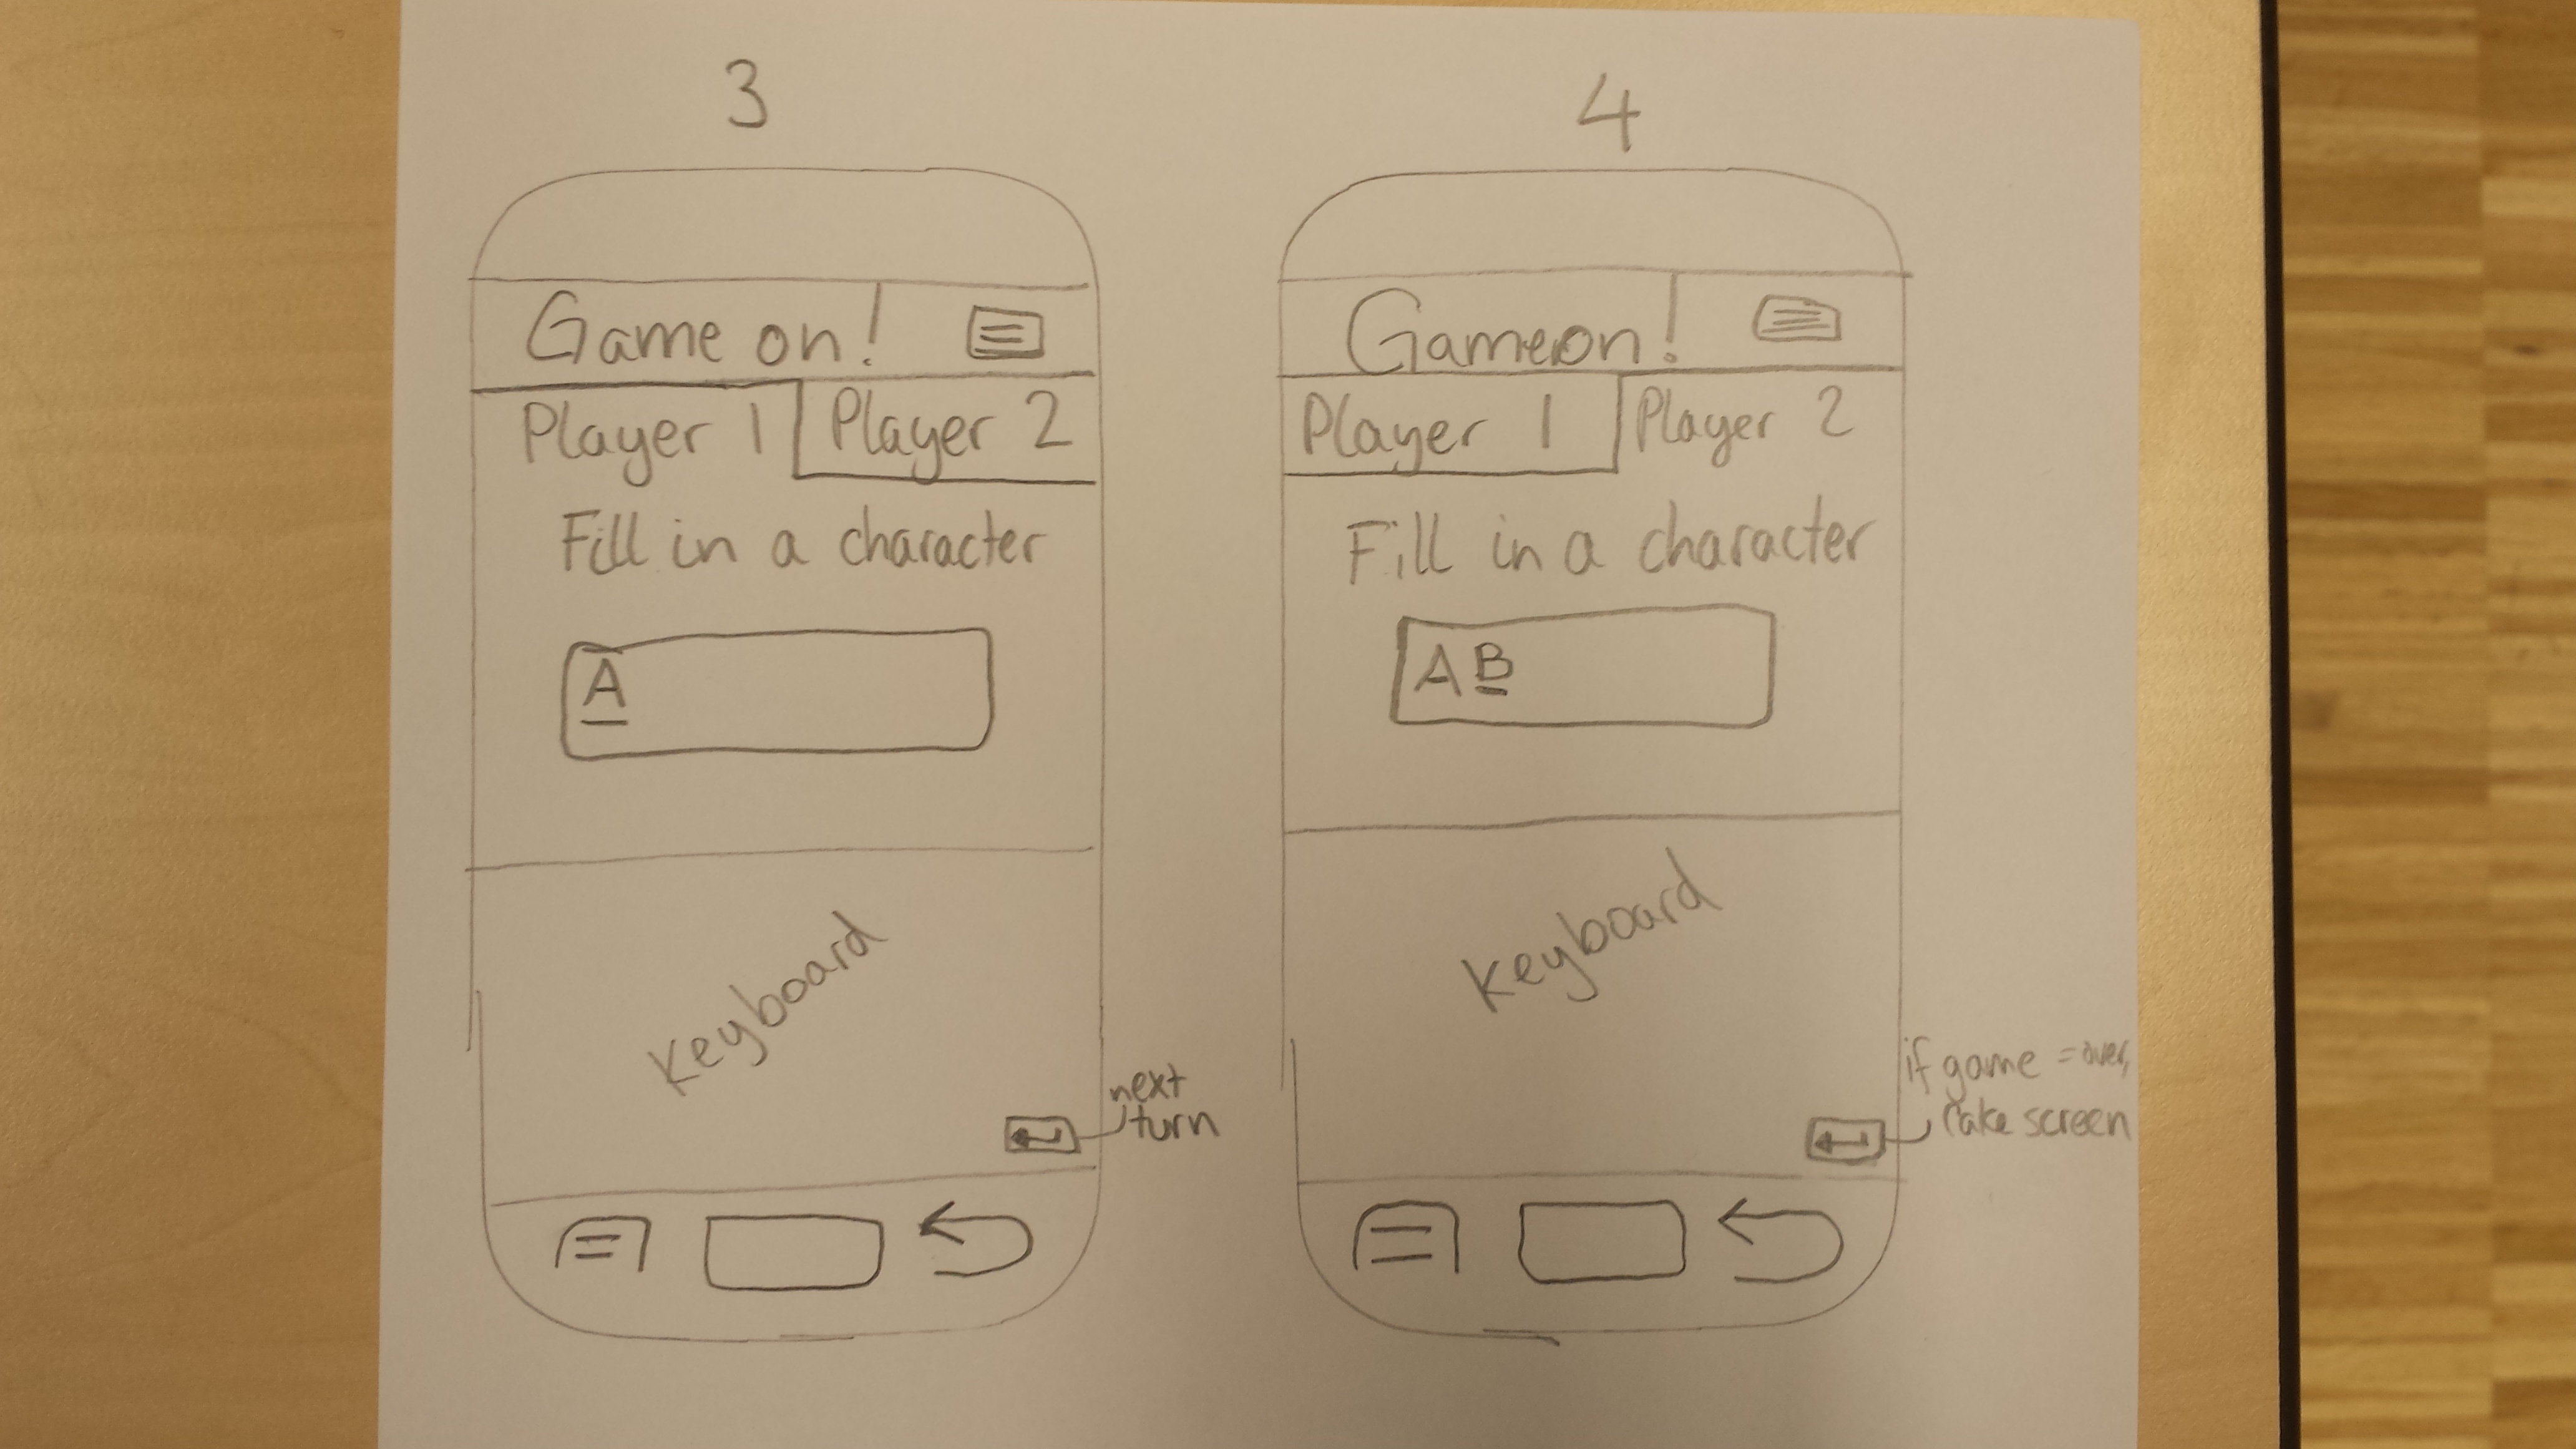 3
Game on!
Player 1 Player 2
Fill in a character
A
Keyboard
next
turn
4
Game on!
Player 1 Player 2
Fill in a character
AB
Keyboard
if game = over,
screen